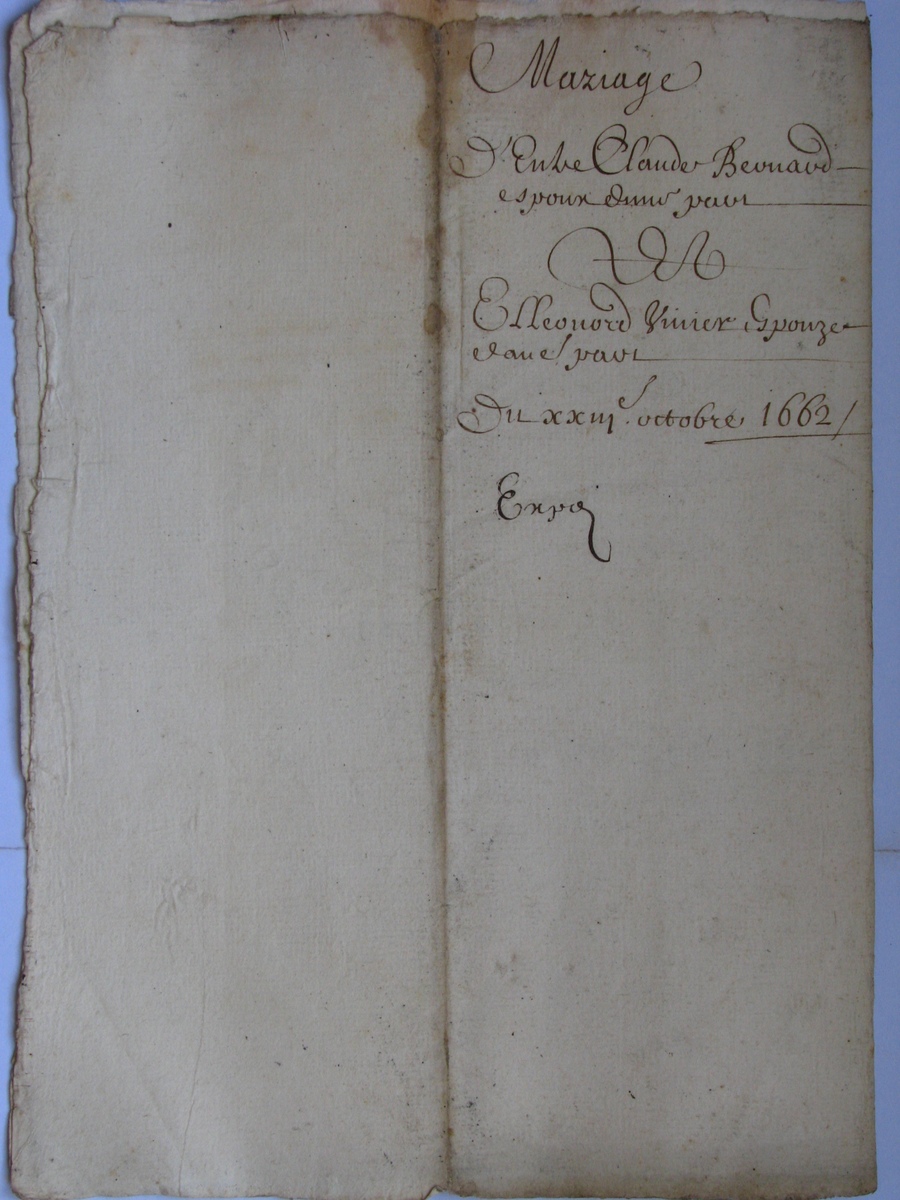 Mariage
D'Entre Claude Bernard
espoux d'une part
Et
Elleonord Vivier Espouze
d'autre part
Du xxiii.e octobre 1662